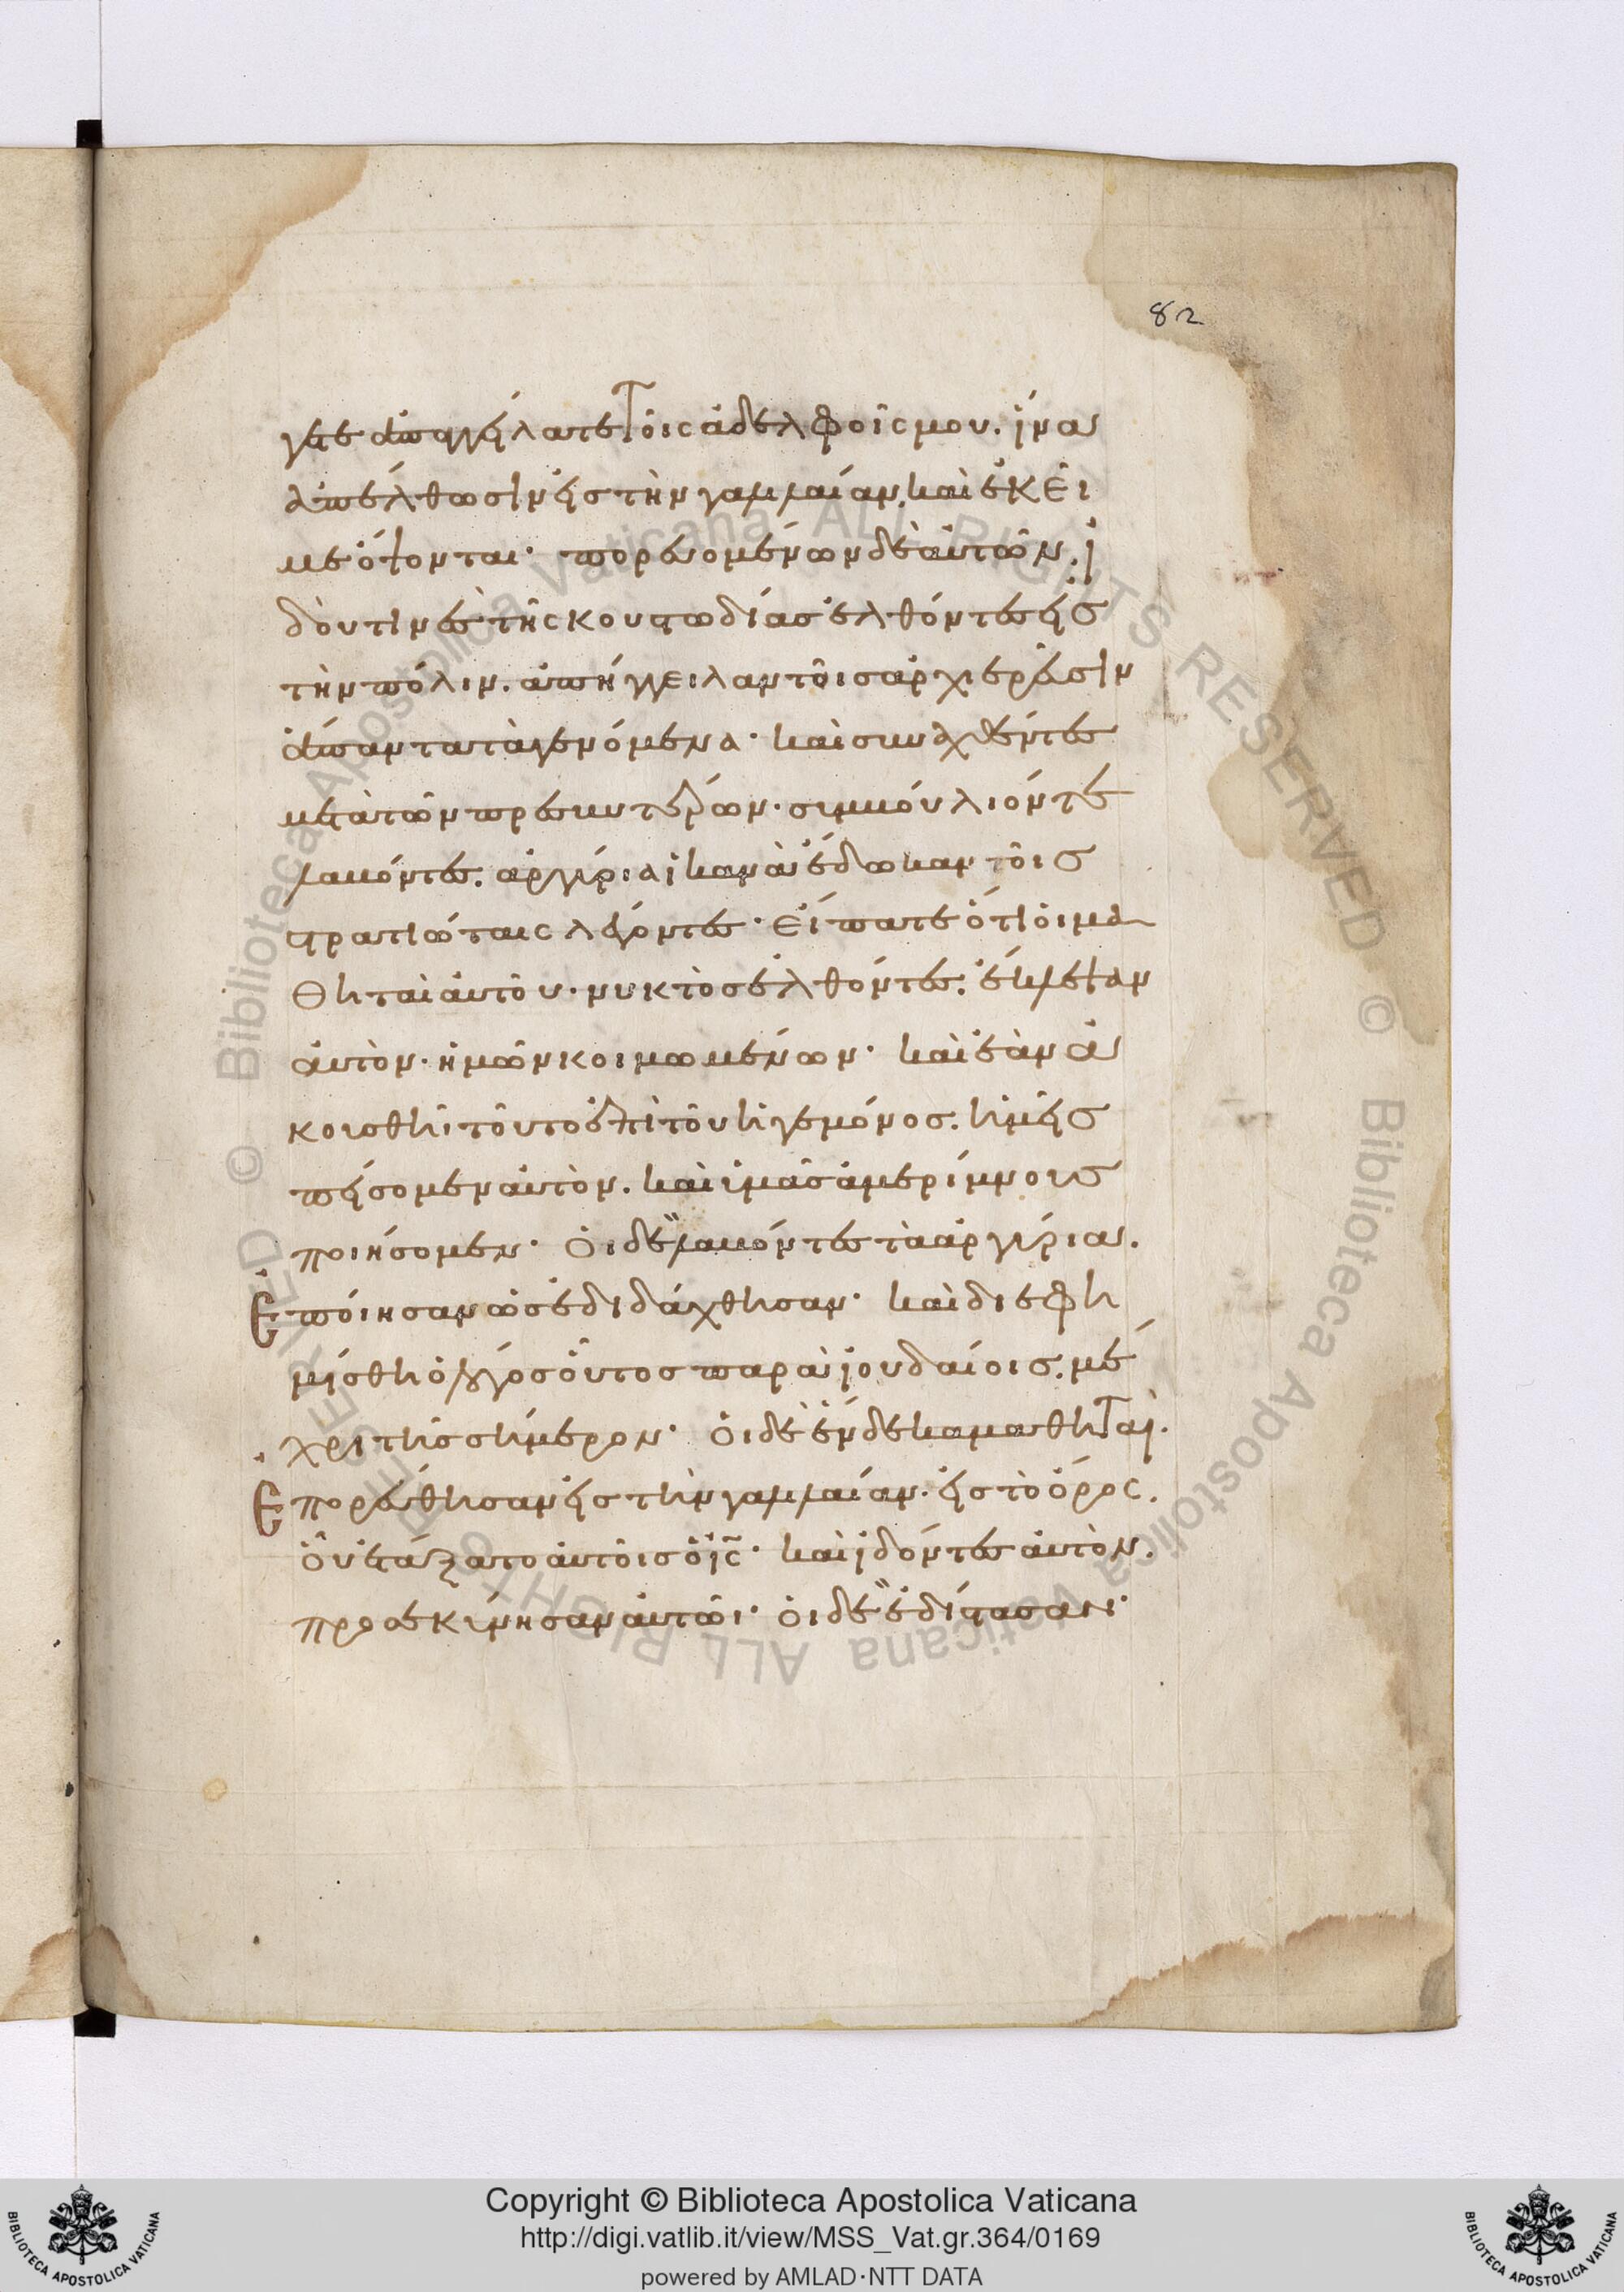 82
γετε ἀπαγγείλατε τοῖς ἀδελφοῖς μου. ἵνα
ἀπέλθωσιν εἰς τὴν γαλιλαίαν, καὶ ἐκεῖ
με ὄψονται· πορευομένων δὲ αὐτῶν. ἰ
δού τινὲς τῆς κουστωδίας ἐλθόντες εἰς
τὴν πόλιν. ἀπήγγειλαν τοῖς ἀρχιερεῦσιν
ἅπαντα τὰ γενόμενα· καὶ συναχθέντες
μετὰ τῶν πρεσβυτέρων· συμβούλιόν τε
λαβόντες. ἀργύρια ἱκανὰ ἔδωκαν τοῖς
στρατιώταις λέγοντες· εἴπατε ὅτι οἱ μα
θηταὶ αὐτοῦ· νυκτὸς ἐλθόντες. ἔκλεψαν
αὐτὸν· ἡμῶν κοιμωμένων· καὶ ἐὰν ἀ
κουσθῆι τοῦτο ἐπὶ τοῦ ἡγεμόνος. ἡμεῖς
πείσομεν αὐτὸν. καὶ ὑμᾶς ἀμερίμνους
ποιήσομεν· οἱ δὲ λαβόντες τὰ ἀργύρια.
Ἐποίησαν ὡς ἐδιδάχθησαν· καὶ διεφη
μίσθη ὁ λόγος οὗτος παρὰ ἰουδαίοις. μέ
χρι τῆς σήμερον· οἱ δὲ ἕνδεκα μαθηταὶ.
Ἐπορεύθησαν εἰς τὴν γαλιλαίαν. εἰς τὸ ὄρος.
οὗ ἐτάξατο αὐτοῖς ὁ ἰς· καὶ ἰδόντες αὐτὸν.
προσεκύνησαν αὐτῶι· οἱ δὲ ἐδίστασαν·
Copyright © Biblioteca Apostolica Vaticana
http://digi.vatlib.it/view/MSS_Vat.gr.364/0169
powered by AMLAD·NTT DATA
BIBLIOTECA APOSTOLICA VATICANA
BIBLIOTECA APOSTOLICA VATICANA
© Biblioteca Apostolica Vaticana ALL RIGHTS RESERVED © Biblioteca Apostolica Vaticana ALL RIGHTS RESERVED